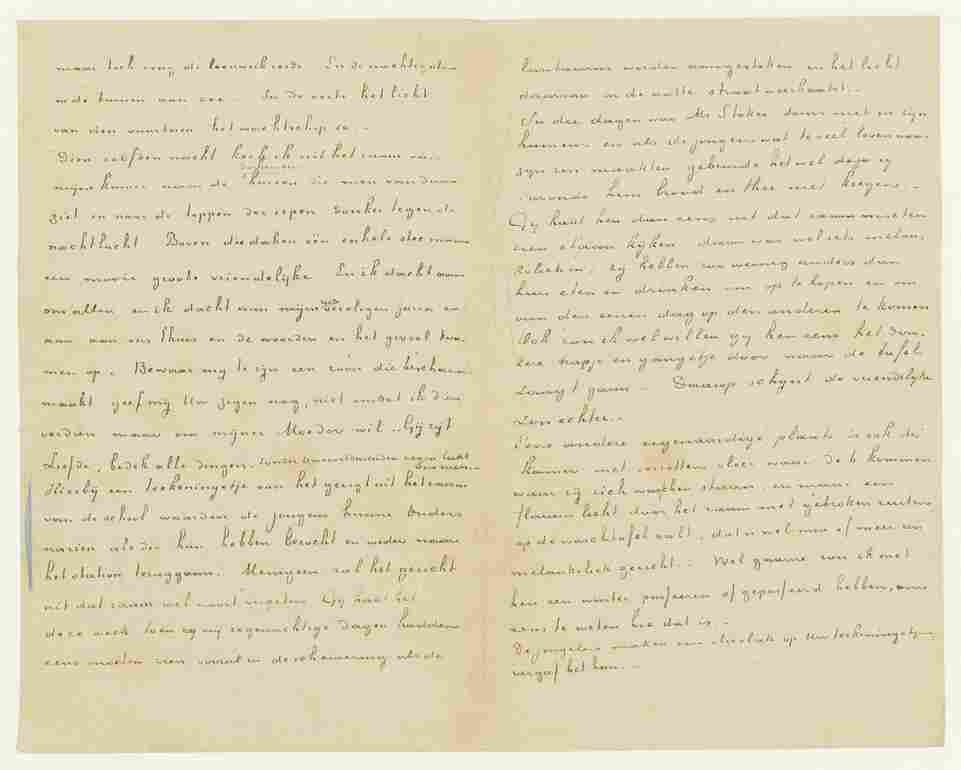 maar toch zong de leeuwerik reeds. En de nachtegalen
in de tuinen aan zee. In de verte het licht
van den vuurtoren het wachtschip &c.
Dien zelfden nacht keek ik uit het raam van
mijn kamer naar de daken der huizen die men van daar
ziet en naar de toppen der iepen donker tegen de
nachtlucht. Boven die daken één enkele ster maar
een mooie groote vriendelijke. En ik dacht aan
ons allen en ik dacht aan mijne vervlogen jaren en
aan ons thuis en de woorden en het gevoel kwa-
men op. Bewaar mij te zijn een zoon die beschaamd
maakt, geef mij Uw zegen nog, niet omdat ik dien
verdien maar om mijner Moeder wil. Gij zijt
Liefde, bedek alle dingen. Zonder Uwen voortdurenden zegen lukt
ons niets.
Hierbij een teekeningetje van het gezigt uit het raam
van de school waardoor de jongens hunne Ouders
nazien als die hun hebben bezocht en weder naar
het station teruggaan. Menigeen zal het gezicht
uit dat raam wel nooit vergeten. Gij had het
deze week toen wij regenachtige dagen hadden
eens moeten zien vooral in de schemering als de
lantaarns worden aangestoken en het licht
daarvan in de natte straat weerkaatst.
In die dagen was Mr Stokes soms niet in zijn
humeur en als de jongens wat te veel leven naar
zijn zin maakten gebeurde het wel dat zij
's avonds hun brood en thee niet kregen.
Gij had hen dan eens uit dat raam moeten
zien staan kijken daar was wel iets melan-
koliek in, zij hebben zoo weinig anders dan
hun eten en drinken om op te hopen en om
van den eenen dag op den anderen te komen
Ook zou ik wel willen gij hen eens het don-
kere trapje en gangetje door naar de tafel
zaagt gaan. Daarop schijnt de vriendelijke
zon echter.
Eene andere eigenaardige plaats is ook de
kamer met verrotten vloer waar de 6 kommen
waar zij zich wasschen staan en maar een
flauw licht door het raam met gebroken ruiten
op de waschtafel valt, dat is wel min of meer een
melankoliek gezicht. Wel gaarne zou ik met
hen een winter passeeren of gepasseerd hebben, om
eens te weten hoe dat is.
De jongelui maken een olievlek op Uw teekeningetje
vergeef het hun.